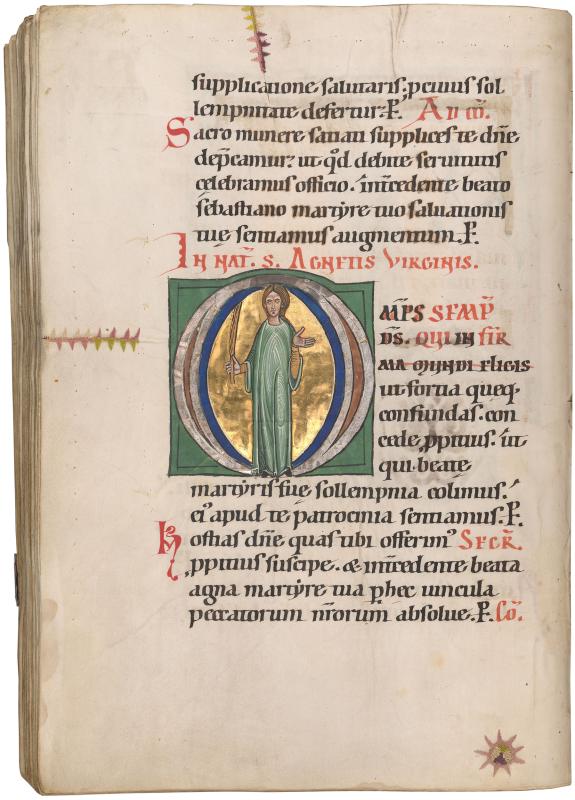 supplicatione salutaris; p cuius sol
lempnitate defertur. P. AD CŌ.
Sacro munere satiati supplices te dn̄e
dep̄camur: ut qd debite seruitutis
celebramus officio. int̄cedente beato
sebastiano martyre tuo saluationis
tue sentiamus augmentum. P.
IN NAT̄. S. AGNETIS VIRGINIS.
OMP̄S SEMP̄
DS̄. QUI INFIR
MA MUNDI ELIGIS
ut fortia queq;
confundas. con
cede ꝓpitius. ut
qui beate
martyris sue sollempnia colimus.
ei apud te patrocinia sentiamus. P.
Hostias dn̄e quas tibi offerim SECR̄.
ꝓpitius suscipe. & int̄cedente beata
agna martyre tua p hec uincula
peccatorum nr̄orum absolue. P. Cō.